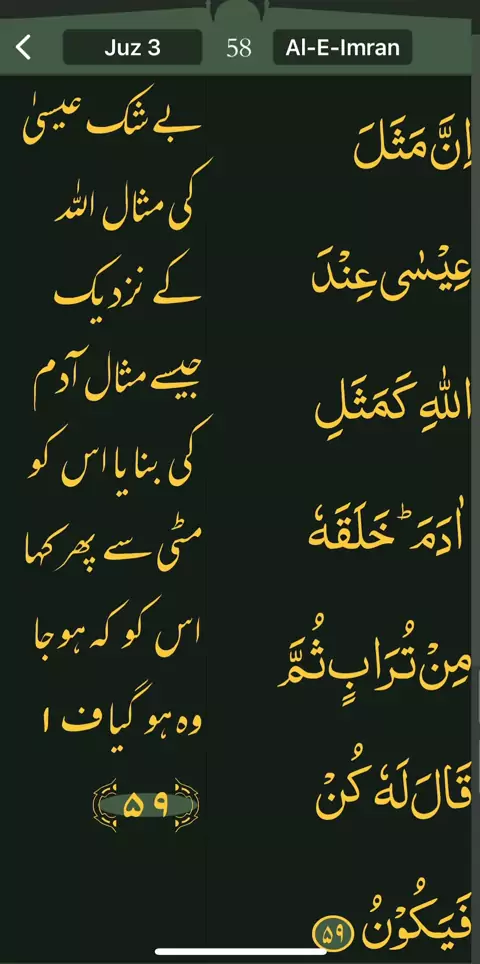 Juz 3 58 Al-E-Imran
اِنَّ مَثَلَ
عِيْسٰى عِنْدَ
اللّٰهِ كَمَثَلِ
اٰدَمَ ؕ خَلَقَهٗ
مِنْ تُرَابٍ ثُمَّ
قَالَ لَهٗ كُنْ
فَيَكُوْنُ ۵۹
بے شک عیسیٰ
کی مثال اللہ
کے نزدیک
جیسے مثال آدم
کی بنایا اس کو
مٹی سے پھر کہا
اس کو کہ ہو جا
وہ ہو گیا ف ۱
۵۹